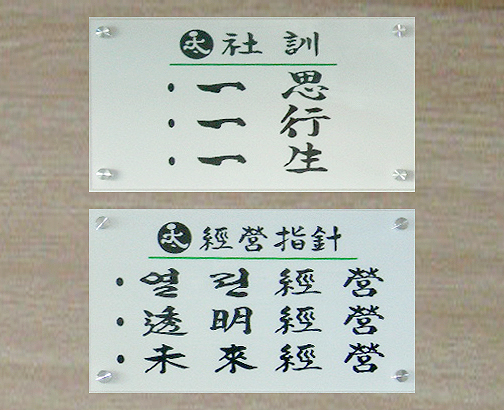 社訓
· 一思
· 一行
· 一生
經營指針
· 열린經營
· 透明經營
· 未來經營